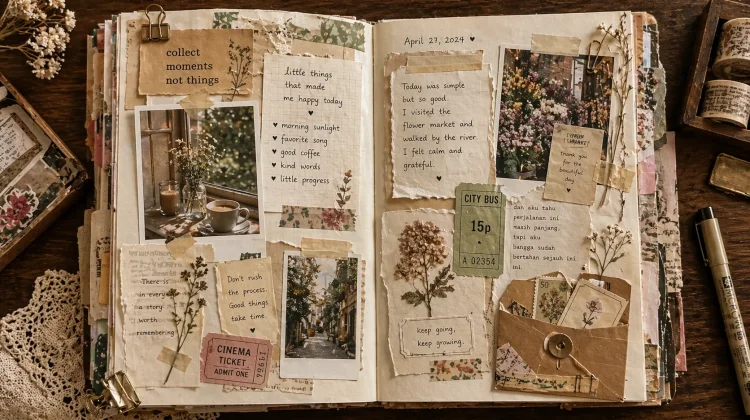 collect
moments
not things
little things
that made
me happy today
♥
♥ morning sunlight
♥ favorite song
♥ good coffee
♥ kind words
♥ little progress
There is
in every
a story
worth
remembering
Don't rush
the process.
Good things
take time.
♥
CINEMA
TICKET
ADMIT ONE
April 27, 2024 ♥
Today was simple
but so good.
I visited the
flower market and
walked by the river.
I felt calm and
grateful.
♥
Thank you
for the
beautiful
day
♥
CITY BUS
15p
A 02354
dan aku tahu
perjalanan ini
masih panjang.
tapi aku
bangga sudah
bertahan sejauh ini
ini.
keep going,
keep growing.
50